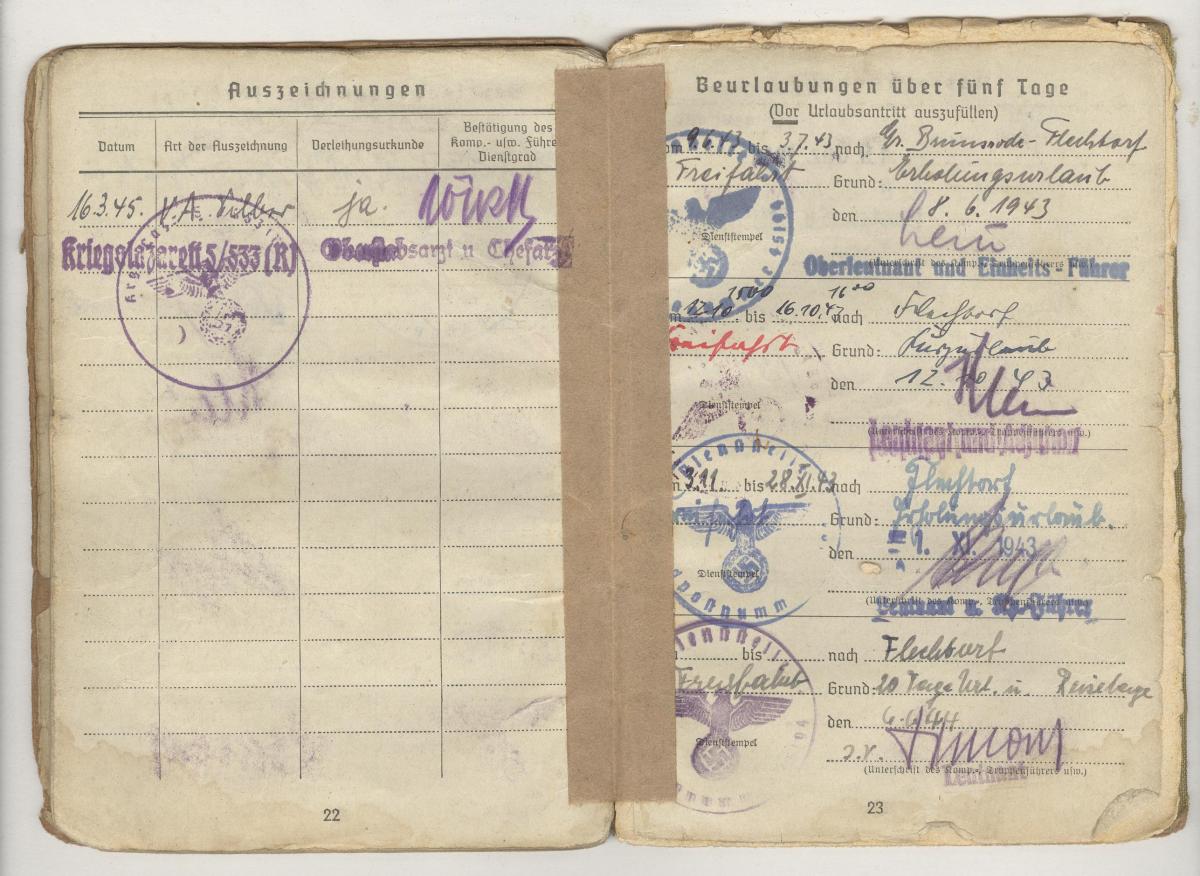 Auszeichnungen
Datum
Art der Auszeichnung
Verleihungsurkunde
Bestätigung des
Komp.- usw. Führe
Dienstgrad
16.3.45.
V.A. Silber
ja.
Kriegslazarett 5/533 (R)
Oberstabsarzt u Chefarzt
22
Beurlaubungen über fünf Tage
(Vor Urlaubsantritt auszufüllen)
9.6.43 bis 3.7.43 nach Gr. Brunsrode-Flechtorf
Freifahrt
Grund: Erholungsurlaub
den 8.6.1943
Dienststempel
Oberleutnant und Einheits-Führer
12.10 1500 bis 16.10.43 1600 nach Flechtorf
Freifahrt
Grund: Kurzurlaub
den 12.10.43
Dienststempel
311. bis 28.XI.43 nach Flechtorf
Grund: Erholungsurlaub.
den 1. XI. 1943
Dienststempel
(Unterschrift des Komp.-, Truppenführers usw.)
Leutnant u. Kp.-Führer
bis nach Flechtorf
Freifahrt
Grund: 20 Tage Url. u. Reisetage
den 6.6.44
Dienststempel
J.V.
(Unterschrift des Komp.-, Truppenführers usw.)
Leutnant
23